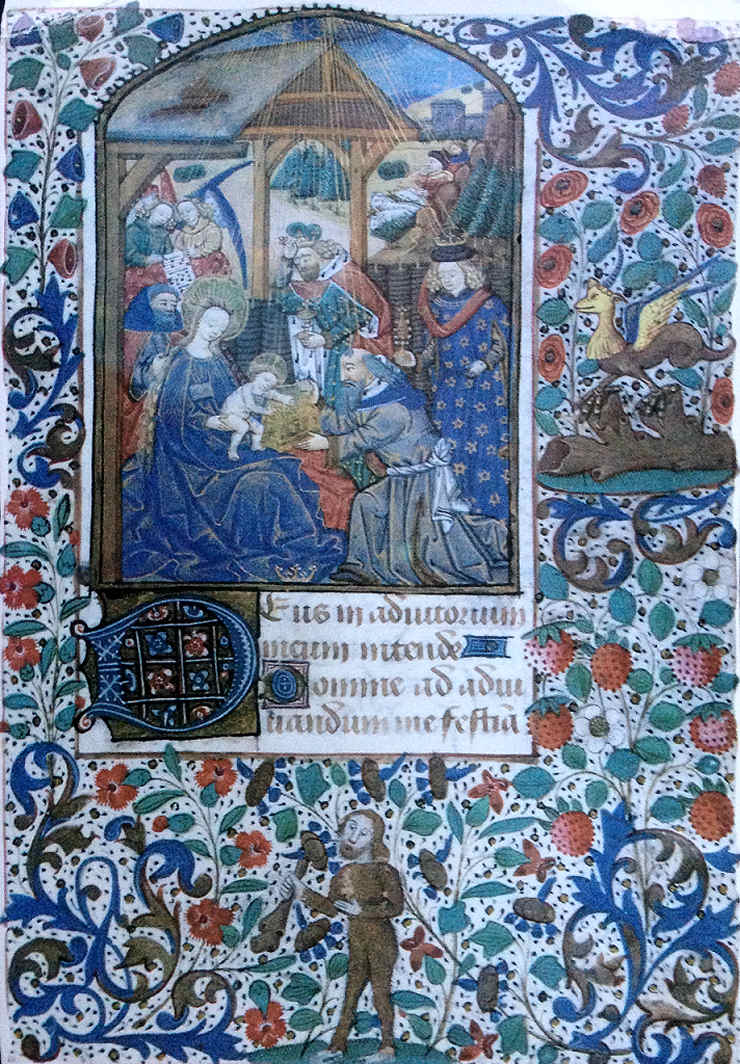 DEus in adiutorium
meum intende
Domine ad adiu
uandum me festiā